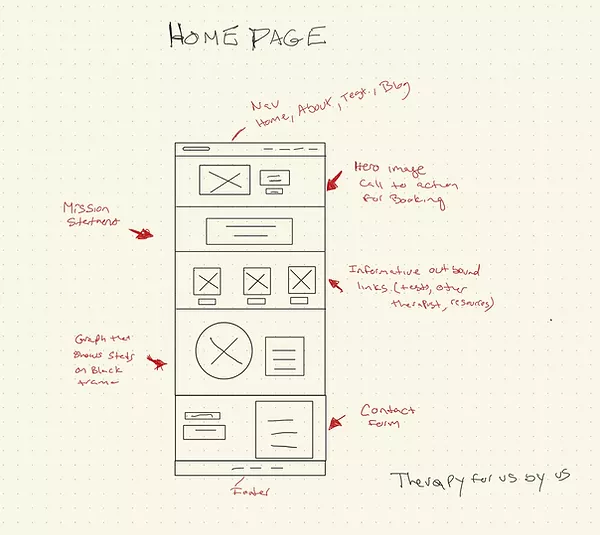 HOME PAGE
Nav
Home, About, Test., Blog
Hero image
Call to action
for Booking
Mission
Statment
Informative outbound
links (tests, other
therapist, resources)
Graph that
shows stats
on Black
trama
Contact
Form
Therapy for us by us
Footer